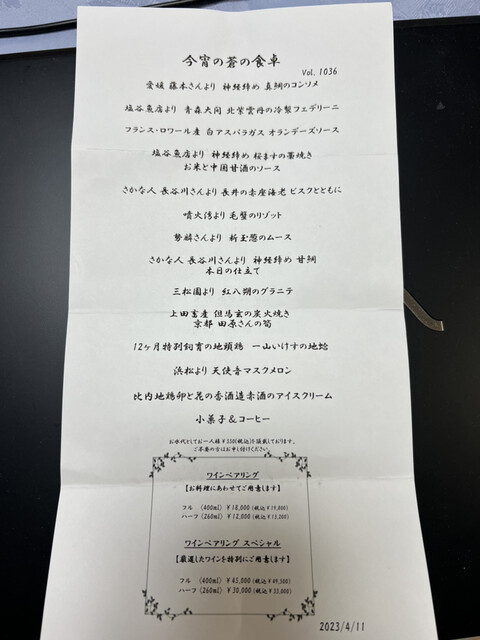 今宵の蒼の食卓
Vol. 1036
愛媛 藤本さんより 神経締め 真鯛のコンソメ
塩谷魚店より 青森大間 北紫雲丹の冷製フェデリーニ
フランス・ロワール産 白アスパラガス オランデーズソース
塩谷魚店より 神経締め 桜ますの藁焼き
お米と中国甘酒のソース
さかな人 長谷川さんより 長井の赤座海老 ビスクとともに
噴火湾より 毛蟹のリゾット
勢麟さんより 新玉葱のムース
さかな人 長谷川さんより 神経締め 甘鯛
本日の仕立て
三松園より 紅八朔のグラニテ
上田畜産 但馬玄の炭火焼き
京都 田原さんの筍
12ヶ月特別飼育の地頭鶏 一山いけすの地蛤
浜松より 天使音マスクメロン
比内地鶏卵と花の香酒造赤酒のアイスクリーム
小菓子&コーヒー
お水代としてお一人様¥550(税込)を頂戴しております。
ご不要の方はお申し付けください。
ワインペアリング
【お料理にあわせてご用意します】
フル (400ml) ¥18,000(税込¥19,800)
ハーフ(260ml) ¥12,000(税込¥13,200)
ワインペアリング スペシャル
【厳選したワインを特別にご用意します】
フル (400ml) ¥45,000(税込¥49,500)
ハーフ(260ml) ¥30,000(税込¥33,000)
2023/4/11